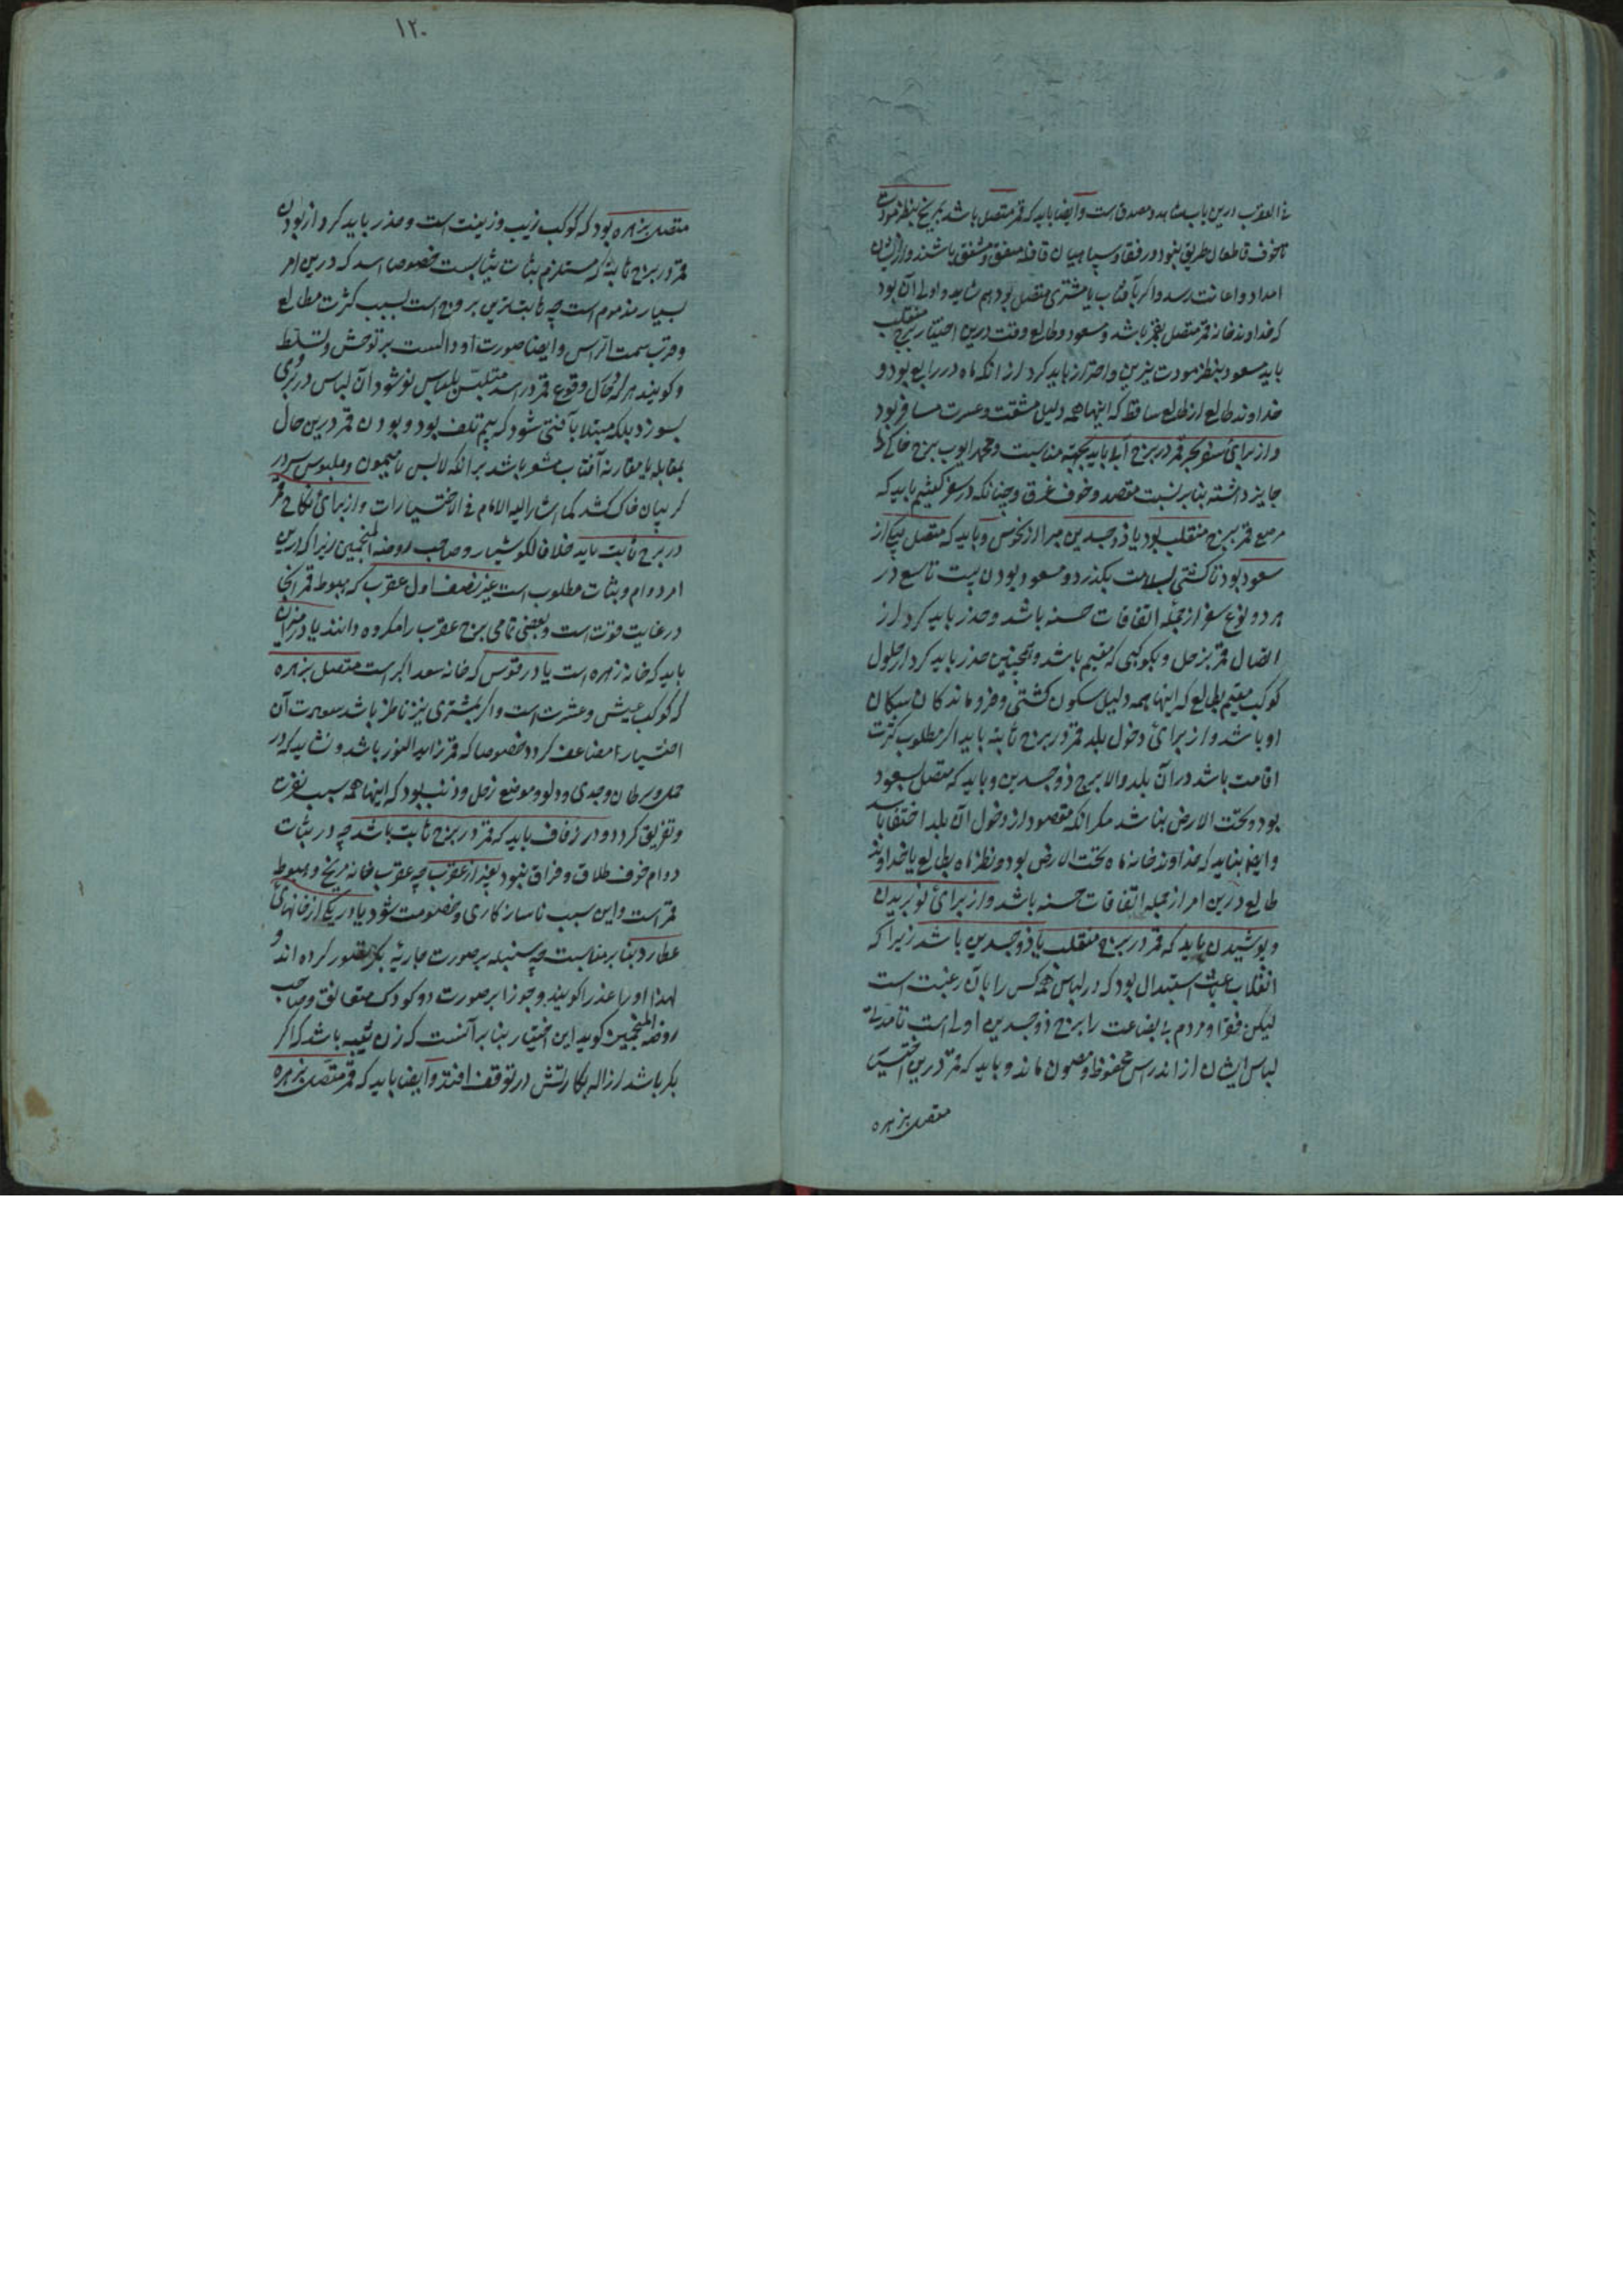 فی العقرب درین باب شاهد و مصدق است و ایضا باید که قمر متصل باشد بمریخ بنظر مودت
تا خوف قاطعان طریق نبود و رفقا و سپاهیان قافله متفق و مشفق باشند و ازیشان
امداد و اعانت رسد و اگر بآفتاب یا مشتری متصل بود هم شاید و اولی آن بود
که خداوند خانه قمر متصل بقمر باشد و مسعود و طالع وقت درین اختیار برج منقلب
باید مسعود بنظر مودت نیرین و احتراز باید کرد از انکه ماه در رابع بود و
خداوند طالع از طالع ساقط که اینها همه دلیل مشقت و عسرت مسافر بود
و از برای سفر بحر قمر در برج آبی باید بجهة مناسبت و محمد ایوب برج خاکی را
جایز داشته بنابر نسبت مقصد و خوف غرق و چنانکه در سفر گفتیم باید که
موضع قمر برج منقلب بود یا ذوجسدین مبرا از نحوس و باید که متصل بیکی از
سعود بود تا کشتی بسلامت بگذرد و مسعود بودن بیت تاسع در
هر دو نوع سفر از جمله اتفاقات حسنه باشد و حذر باید کرد از
اتصال قمر بزحل و بکوکبی که مقیم باشد و همچنین حذر باید کرد از حلول
کوکب مقیم بطالع که اینها همه دلیل سکون کشتی و فرو ماندکان
او باشد و از برای دخول بلد قمر در برج ثابته باید اگر مطلوب کثرت
اقامت باشد در آن بلد و الا برج ذوجسدین و باید که متصل بسعود
بود و تحت الارض نباشد مگر انکه مقصود از دخول آن بلد اختفا باشد
و ایضا نباید که خداوند خانه ماه تحت الارض بود و نظر ماه بطالع یا خداوند
طالع درین امر از جمله اتفاقات حسنه باشد و از برای نو بریدن
و پوشیدن باید که قمر در برج منقلب یا ذوجسدین باشد زیرا که
انقلاب استبدال بود که در لباس همه کس را بآن رغبت است
لیکن فقرا و مردم بی بضاعت را برج ذوجسدین اولی است تا مدتی
لباس ایشان از اندراس محفوظ و مصون ماند و باید که قمر درین اختیار
متصل بزهره
۱۲۰
متصل بزهره بود که کوکب زیب و زینت است و حذر باید کرد از بودن
قمر در برج ثابته که مستلزم ثبات ثیابست خصوصا اسد که درین امر
بسیار مذموم است چه ثابت ترین بروج است بسبب کثرت مطالع
و قرب سمت الراس و ایضا صورت او دالست بر توحش و تسلط
و گویند هر که در حال وقوع قمر در اسد متلبس بلباس نو شود آن لباس در بروی
بسوزد بلکه مبتلا بآفتی شود که بیم تلف بود و بودن قمر درین حال
بمقابله یا مقارنه آفتاب مشعر باشد برانکه لابس نامیمون و ملبوس سر در
گریبان خاک کشد کما اشار الیه الامام فی الاختیارات و از برای نکاح قمر
در برج ثابت باید خلافا لکوشیار و صاحب روضه المنجمین زیرا که درین
امر دوام و ثبات مطلوب است غیر نصف اول عقرب که هبوط قمر آنجا
در غایت قوت است و بعضی تمامی برج عقرب را مکروه دانند یا در میزان
باید که خانه زهره است یا در قوس که خانه سعد اکبر است متصل بزهره
که کوکب عیش و عشرت است و اگر بمشتری نیز ناظر باشد سعادت آن
اختیار مضاعف گردد خصوصا که قمر زاید النور باشد و نشاید که در
حمل و سرطان و جدی و دلو و موضع زحل و ذنب بود که اینها همه سبب نفرت
و تفریق گردد و در زفاف باید که قمر در برج ثابت باشد چه در ثبات
دوام خوف طلاق و فراق نبود بغیر از عقرب چه عقرب خانه مریخ و هبوط
قمر است و این سبب ناسازکاری و خصومت شود یا در یکی از خانهای
عطارد بنابر مناسبت چه سنبله بر صورت جاریه بکر تصور کرده اند و
لهذا او را عذرا گویند و جوزا بر صورت دو کودک متعانق و صاحب
روضه المنجمین گوید این اختیار بنا بر آنست که زن ثیبه باشد که اگر
بکر باشد ازاله بکارتش در توقف افتد و ایضا باید که قمر متصل بزهره